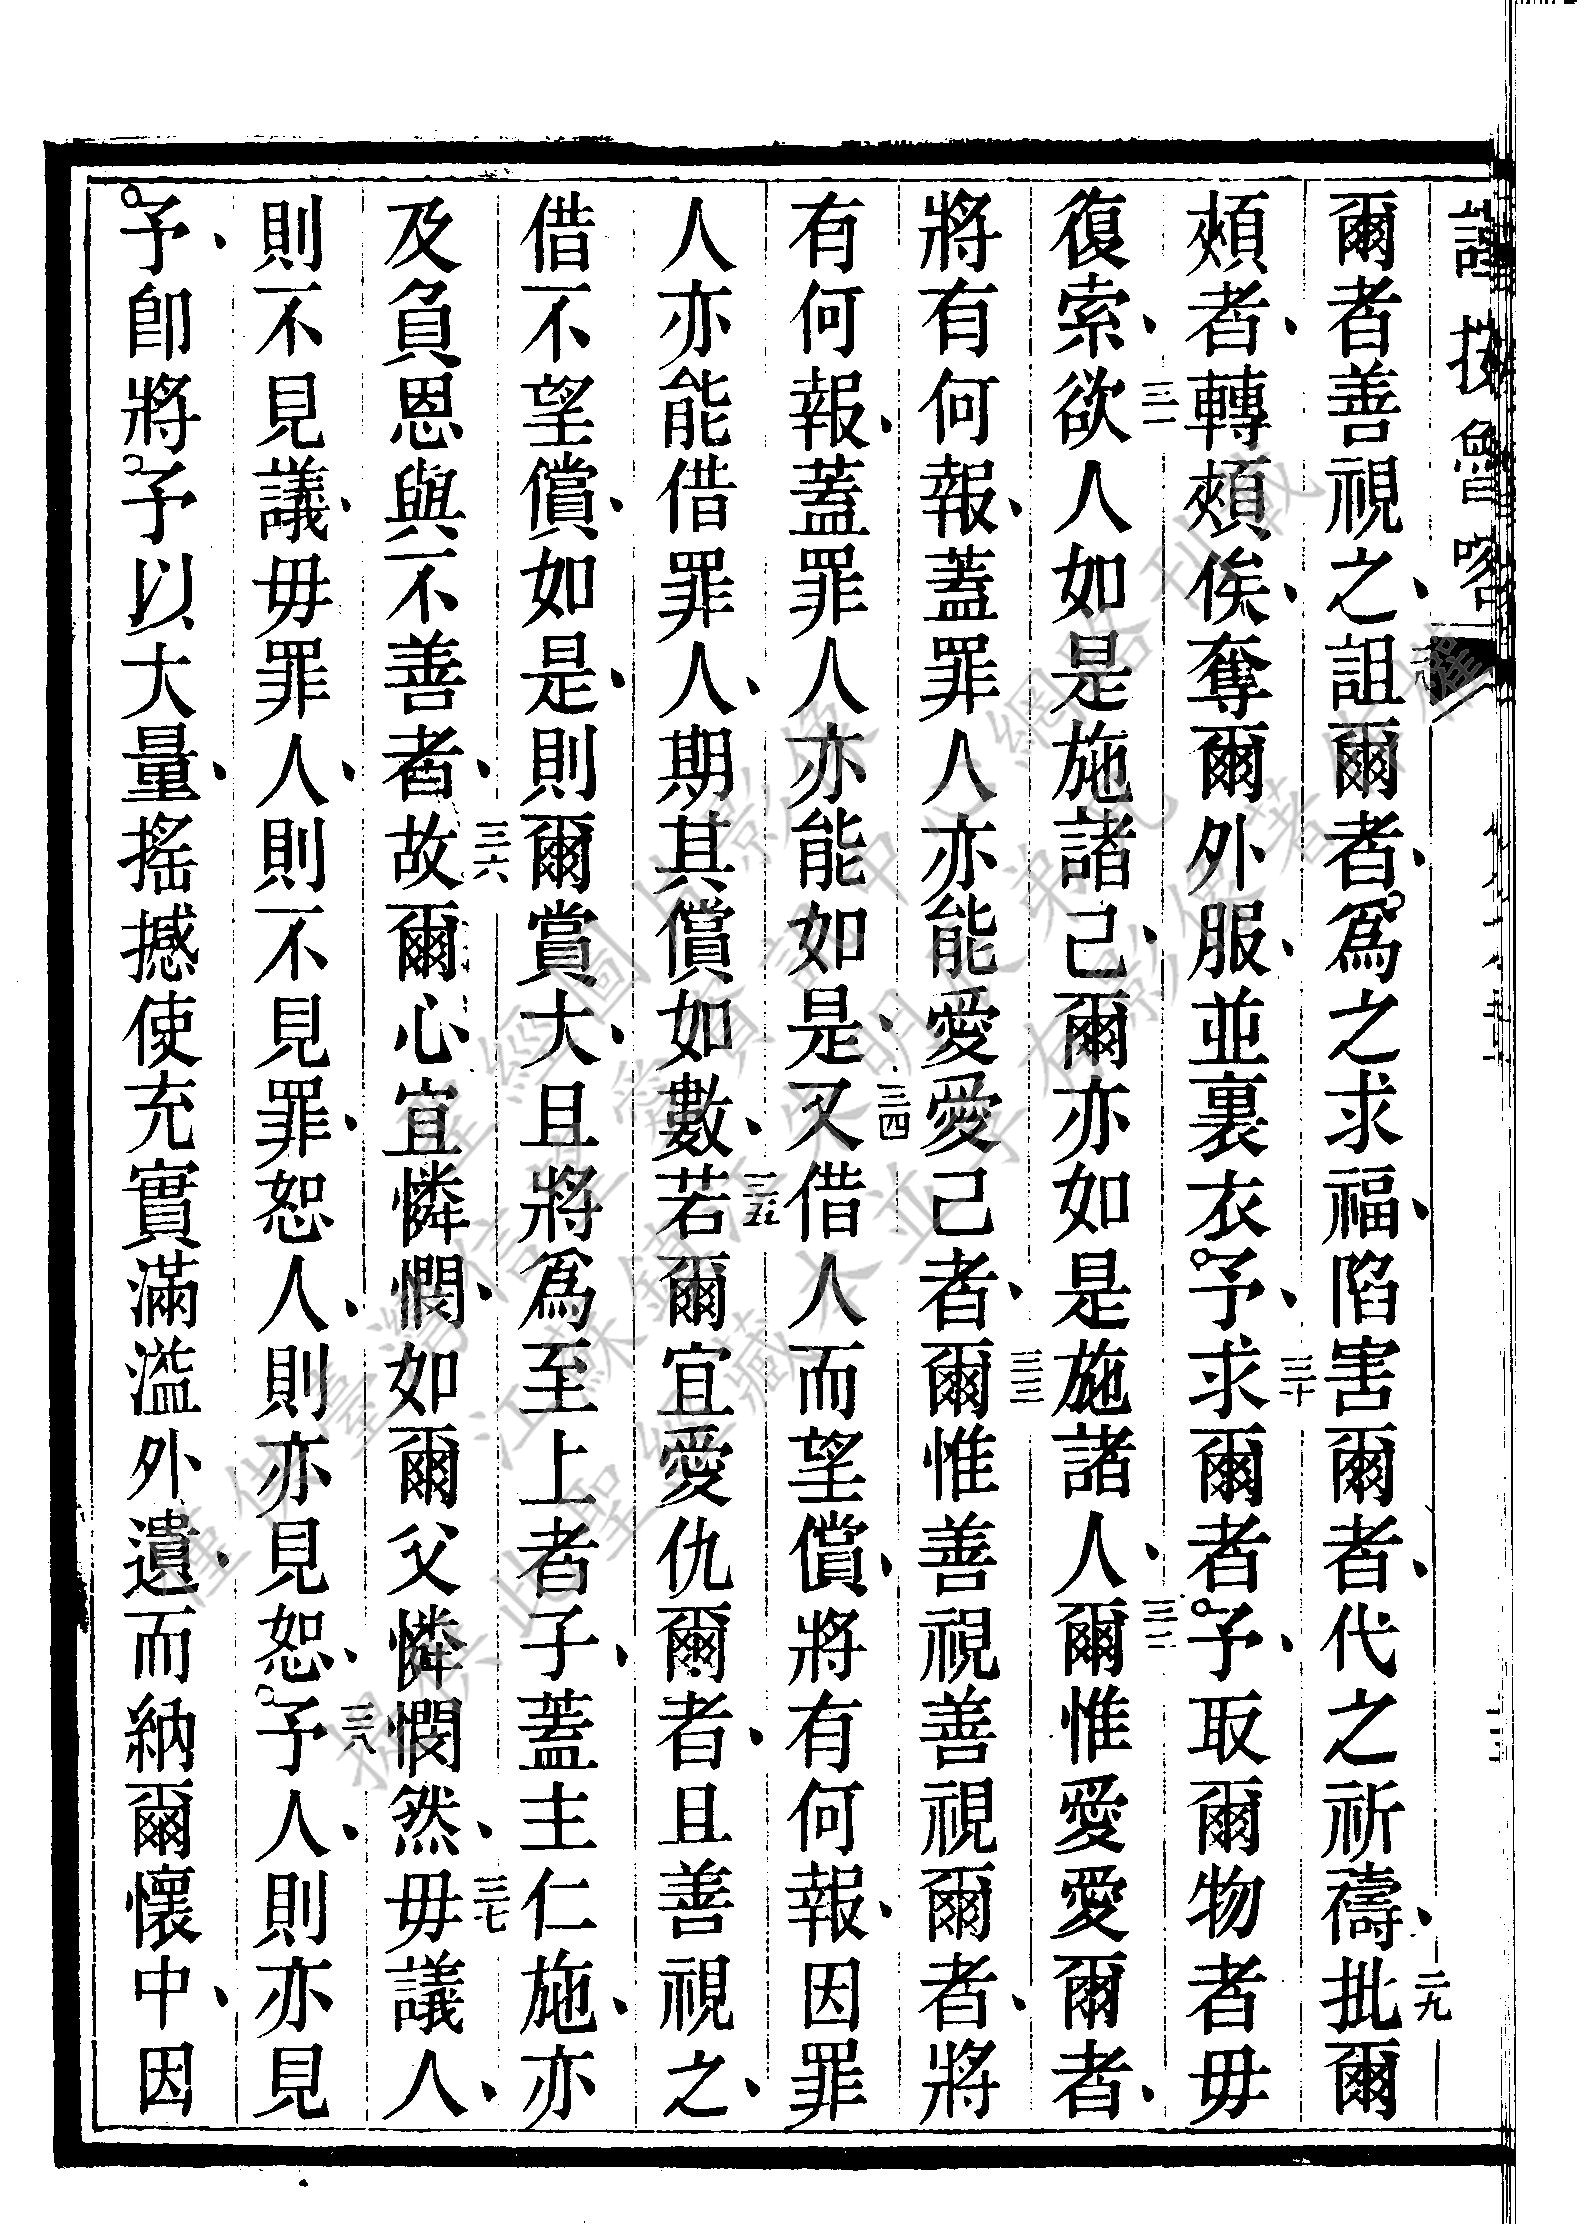 爾者善視之、詛爾者、爲之求福、陷害爾者、代之祈禱、二九批爾
頰者、轉頰俟、奪爾外服、並裏衣予、三十求爾者予、取爾物者毋
復索、三一欲人如是施諸己、爾亦如是施諸人、三二爾惟愛愛爾者、
將有何報、蓋罪人亦能愛愛己者、三三爾惟善視善視爾者、將
有何報、蓋罪人亦能如是、三四又借人而望償、將有何報、因罪
人亦能借罪人、期其償如數、三五若爾宜愛仇爾者、且善視之、
借不望償、如是、則爾賞大、且將爲至上者子、蓋主仁施、亦
及負恩與不善者、三六故爾心宜憐憫、如爾父憐憫然、三七毋議人、
則不見議、毋罪人、則不見罪、恕人、則亦見恕、三八予人、則亦見
予、卽將予以大量、搖撼使充實滿溢外遺、而納爾懷中、因